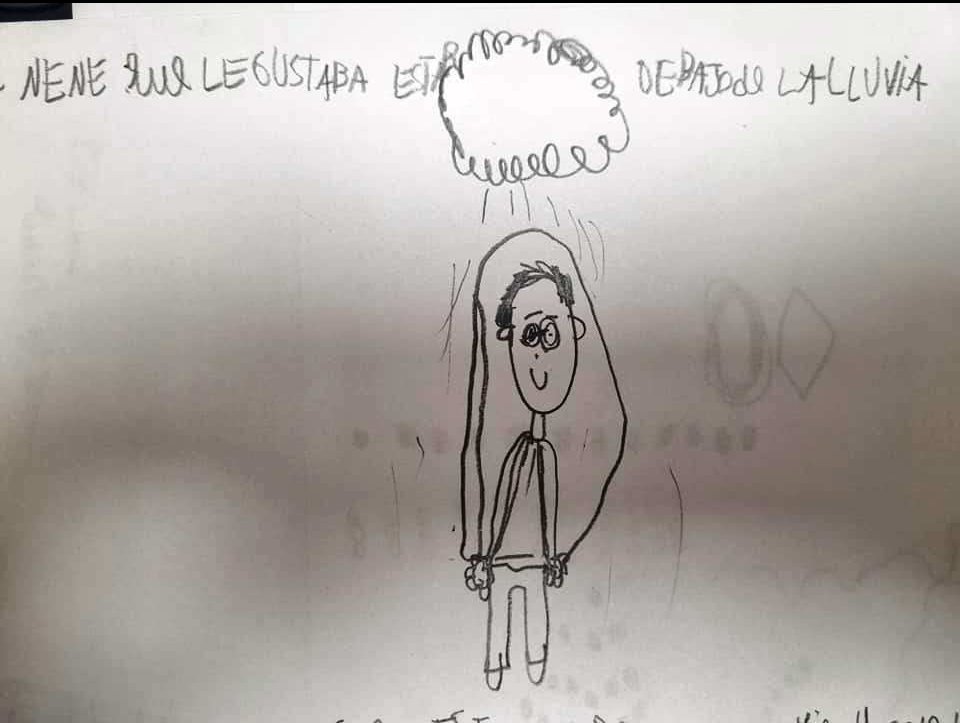 NENE que LE GUSTABA ESTAR DEBAJO de LA LLUVIA